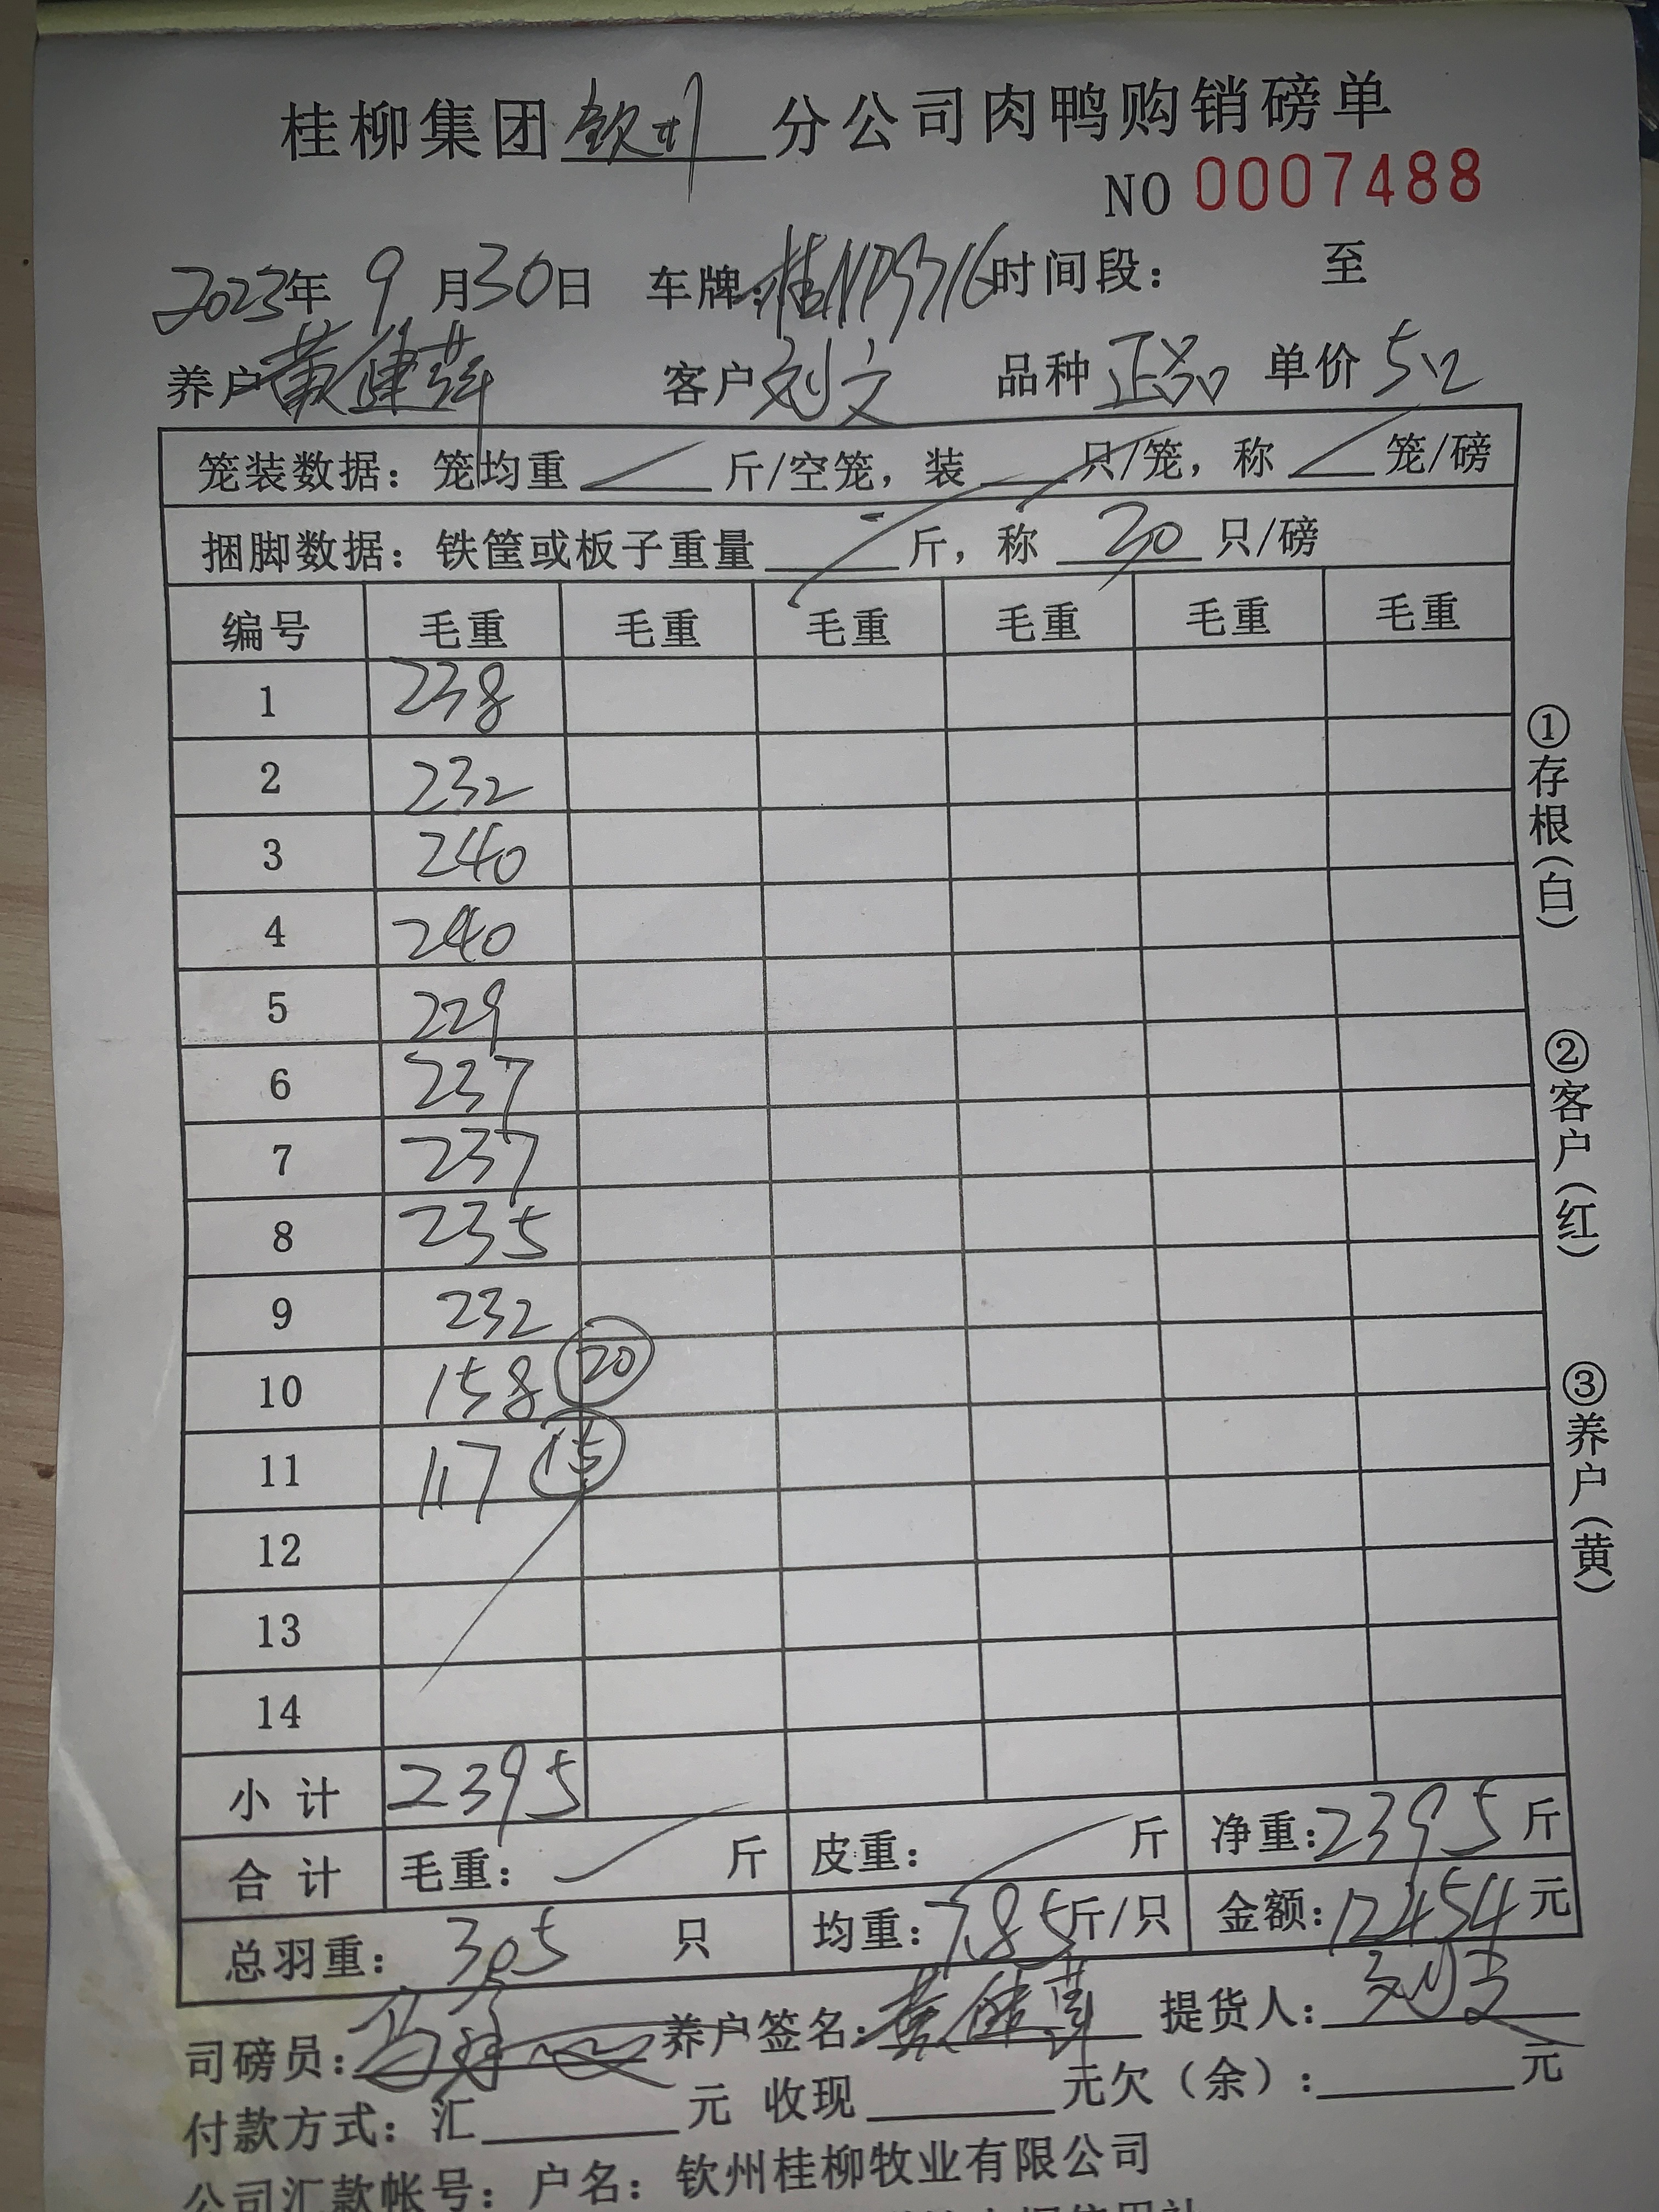 桂柳集团钦州分公司肉鸭购销磅单
NO 0007488
2023年 9月30日 车牌:桂NP5716时间段: 至
养户黄健萍 客户刘文 品种正品 单价5.2
笼装数据:笼均重 斤/空笼,装 只/笼,称 笼/磅
捆脚数据:铁筐或板子重量 斤,称 30 只/磅
编号 毛重 毛重 毛重 毛重 毛重 毛重
1 238
2 232
3 240
4 240
5 229
6 237
7 237
8 235
9 232
10 158 20
11 117 15
12
13
14
小计 2395
合计 毛重: 斤 皮重: 斤 净重:2395斤
总羽重:305 只 均重:7.85斤/只 金额:12454元
司磅员: 养户签名:黄健萍 提货人:刘文
付款方式:汇 元 收现 元欠(余): 元
公司汇款帐号:户名:钦州桂柳牧业有限公司
①存根(白)
②客户(红)
③养户(黄)